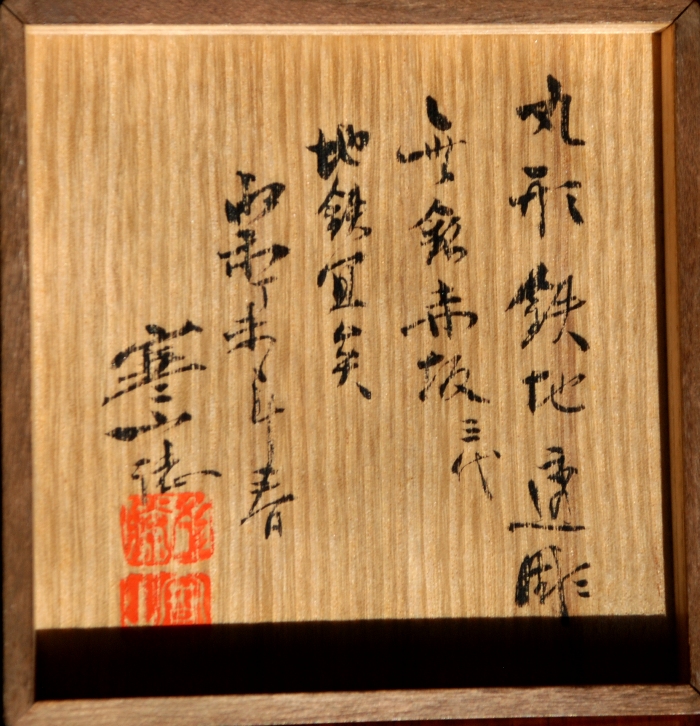 丸形鉄地透彫
無銘赤坂三代
地鉄宜矣
丁未年春
寒山誌